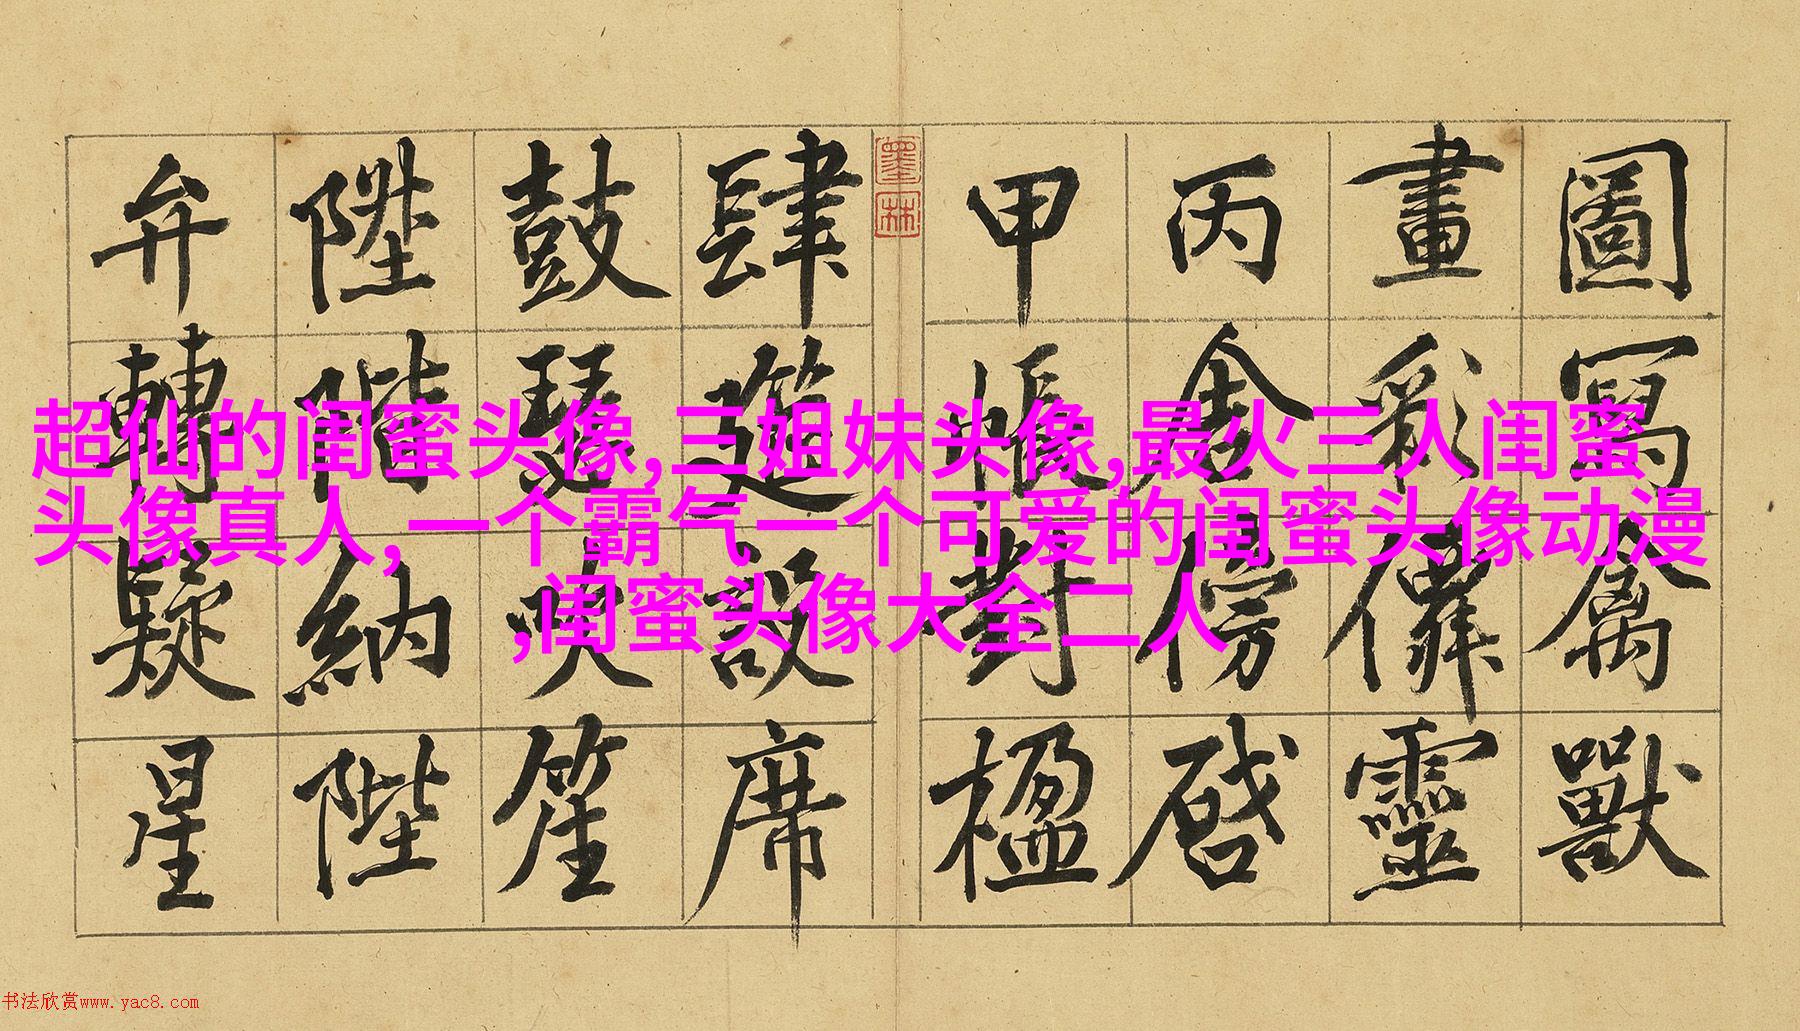 圖寫禽獸
畫彩僊靈
丙舍傍啓
甲帳對楹
墨林
肆筵設席
鼓瑟吹笙
陞階納陛
弁轉疑星
超仙的闺蜜头像,三姐妹头像,最火三人闺蜜
头像真人,一个霸气一个可爱的闺蜜头像动漫
,闺蜜头像大全二人
书法欣赏www.yac8.com